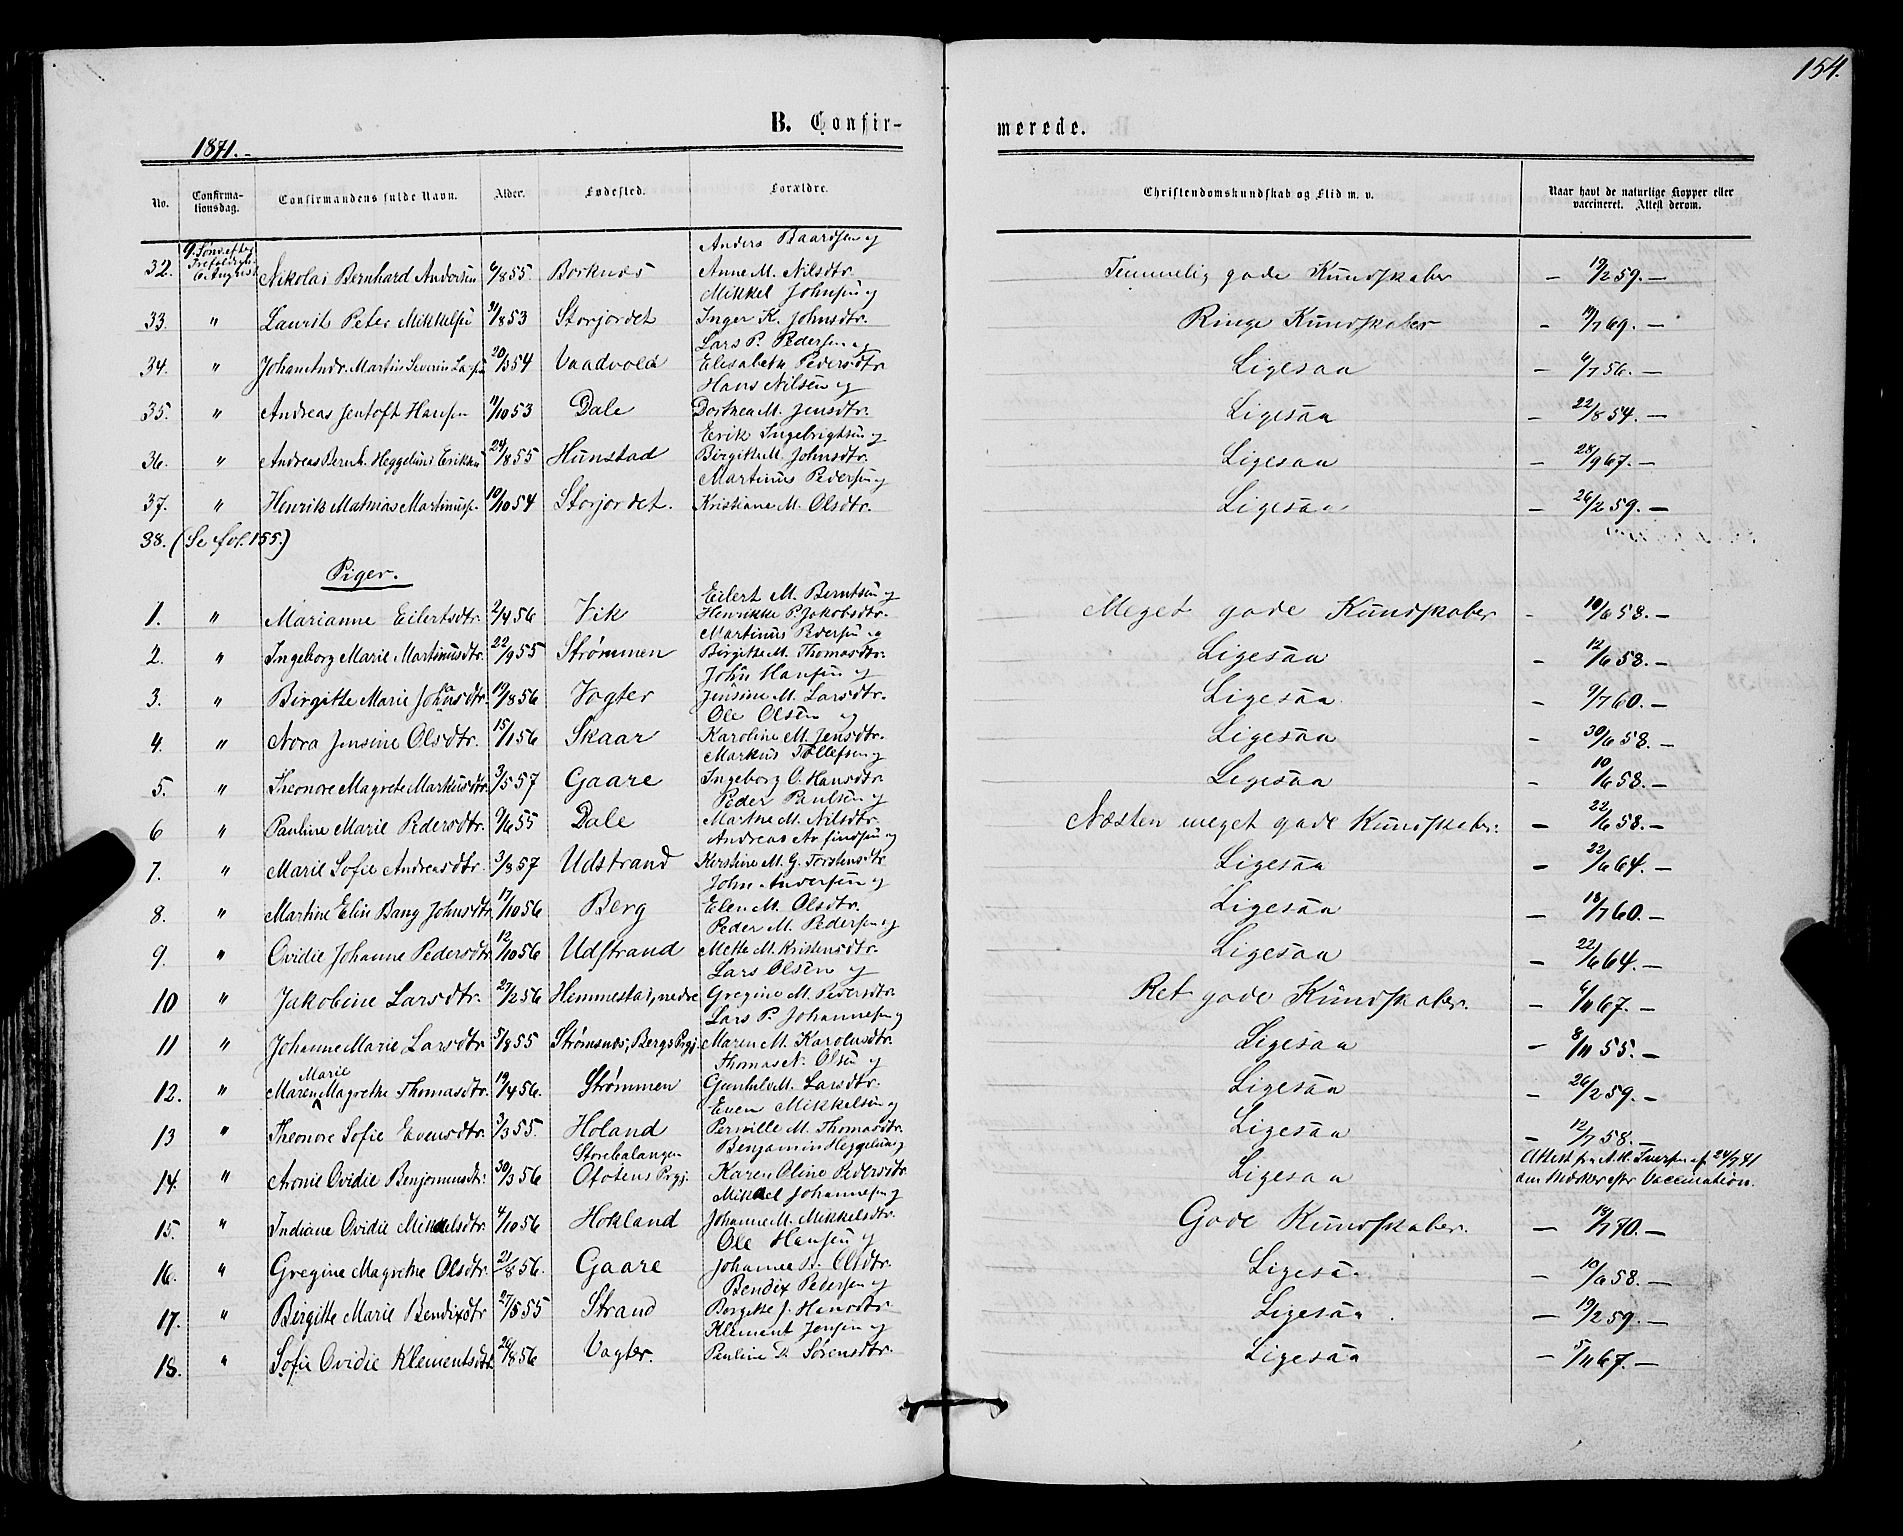 154.
1871.
B. Confir- merede.
No. Confirma-tionsdag. Confirmandens fulde Navn. Alder. Fødested. Forældre. Christendomskundskab og Flid m. v. Naar havt de naturlige Kopper eller vaccineret. Attest derom.
Anders Baardsen og
32. 9. Sønd. efter Trefoldigh. 6. August Nikolai Bernhard Andersen 6/8 55 Borknes Anne M. Nilsdtr. Temmelig gode Kundskaber — 19/2 59. —
Mikkel Johnsen og
33. " Laurit Peter Mikkelsen 31/8 53 Storjordet Inger K. Johnsdtr. Ringe Kundskaber — 19/7 69. —
Lars P. Pedersen og
34. " Johan Andr. Martin Severin Larsen 20/3 54 Vaadvold Elisabeth Pedersdtr. Ligesaa — 6/7 56. —
Hans Nilsen og
35. " Andreas Jentoft Hansen 11/10 53 Dale Dorthea M. Jensdtr. Ligesaa — 22/8 54. —
Erik Ingebrigtsen og
36. " Andreas Bernh. Heggelund Eriksen 24/8 55 Hunstad Birgitte M. Johnsdtr. Ligesaa — 28/9 67. —
Martinus Pedersen og
37. " Henrik Mathias Martinusen 10/10 54 Storjordet. Kristiane M. Olsdtr. Ligesaa — 26/2 59. —
38. (Se fol. 155.)
Piger.
Eilert M. Berntsen og
1. " Marianne Eilertsdtr. 2/4 56 Vik Henrikke P. Jakobsdtr. Meget gode Kundskaber — 10/6 58. —
Martinus Pedersen og
2. " Ingeborg Marie Martinusdtr. 22/9 55 Strømmen Birgitte M. Thomasdtr. Ligesaa — 12/6 58. —
John Hansen og
3. " Birgitte Marie Johnsdtr. 19/8 56 Vogter Jensine M. Larsdtr. Ligesaa — 9/7 60. —
Ole Olsen og
4. " Nora Jensine Olsdtr. 15/1 56 Skaar Karoline M. Jensdtr. Ligesaa — 30/6 58. —
Markus Tollefsen og
5. " Theonore Magrete Markusdtr. 3/5 57 Gaare Ingeborg O. Hansdtr. Ligesaa — 10/6 58. —
Peder Paulsen og
6 " Pauline Marie Pedersdtr. 9/6 55 Dale Marthe M. Nilsdtr. Næsten meget gode Kundskaber. — 22/6 58. —
Andreas Arfindsen og
7. " Marie Sofie Andreasdtr. 3/8 57 Udstrand Kerstine M. G. Torstensdtr Ligesaa — 22/6 64. —
John Andersen og
8. " Martine Elin Bang Johnsdtr. 17/10 56 Berg Elen M. Olsdtr. Ligesaa — 18/7 60. —
Peder M. Pedersen og
9. " Ovidie Johanne Pedersdtr 12/10 56 Udstrand Mette M. Kristensdtr. Ligesaa — 22/6 64. —
Lars Olsen og
10 " Jakobine Larsdtr. 27/2 56 Hemmestad, nedre Gregine M. Pedersdtr. Ret gode Kundskaber. — 6/11 67. —
Lars P. Johannesen og
11 " Johanne Marie Larsdtr. 5/8 55 Strømsnes, Bergs Prgj. Maren M. Karolusdtr. Ligesaa — 8/11 55. —
Thomas N. Olsen og
12. " Maren Marie Magrethe Thomasdtr. 19/4 56. Strømmen Gunhil M. Larsdtr. Ligesaa — 26/2 59. —
Even Mikkelsen og
13 " Theonore Sofie Evensdtr. 3/3 55. Holand Pernille M. Thomasdtr. Ligesaa — 12/7 58. —
Storebalangen Benjamin Heggelund Attest fra A. H. Iversen af 24/7 71
14. " Arnie Ovidie Benjaminsdtr. 30/3 56 Ofotens Prgj. Karen Oline Pedersdtr. Ligesaa om Mærker eftr Vaccination.
Mikael Johannesen og
15. " Indiane Ovidie Mikaelsdtr. 4/10 56 Hokland Johanne M. Mikkelsdtr. Gode Kundskaber. — 18/7 70. —
Ole Hansen og
16. " Gregine Magrethe Olsdtr. 21/8 56. Gaare Johanne Olsdtr. Ligesaa — 10/6 58. —
Bendix Petersen og
17. " Birgitte Marie Bendixdtr. 27/5 55 Strand Bergitte J. Hansdtr. Ligesaa. — 19/2 59. —
Klement Jensen og
18. " Sofie Ovidie Klementsdtr 26/8 56 Vagter. Pauline Sørensdtr. Ligesaa — 5/11 67. —